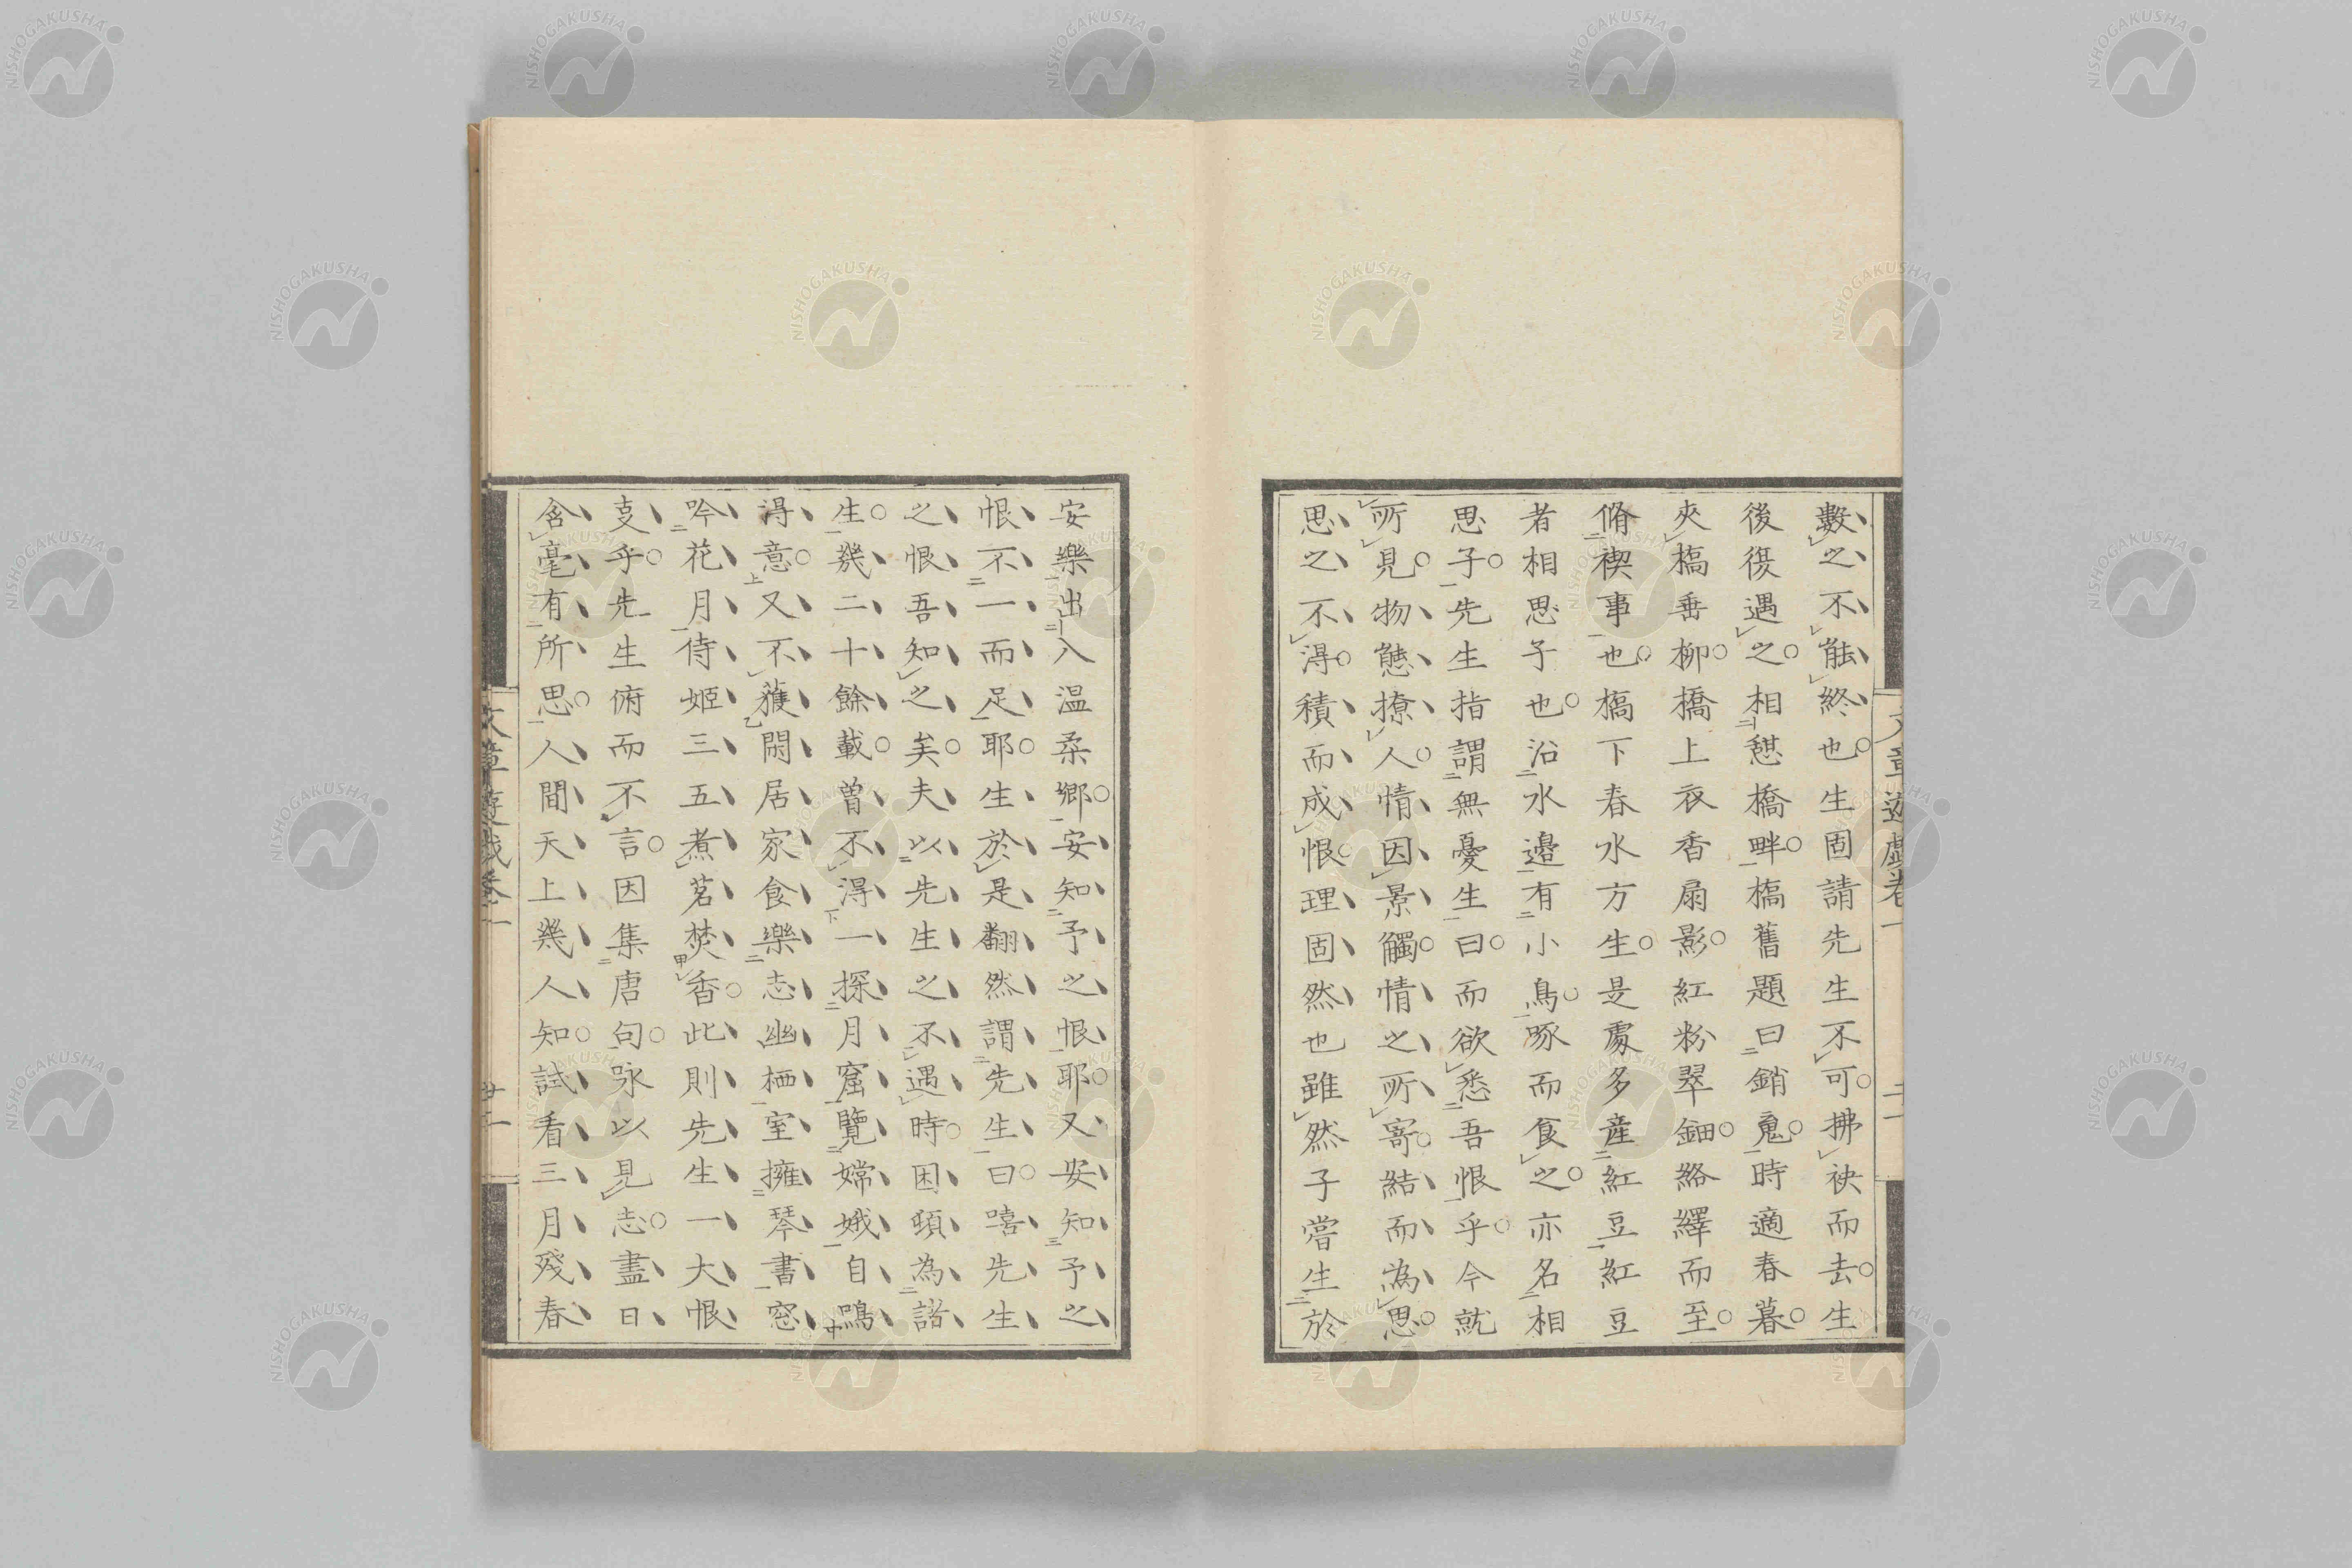 數之不能終也生固請先生不可拂袂而去生
後復遇之相憩橋畔橋舊題曰銷魂時適春暮
夾橋垂柳橋上衣香扇影紅粉翠鈿絡繹而至
脩禊事也橋下春水方生是處多產紅豆紅豆
者相思子也沿水邊有小鳥啄而食之亦名相
思子先生指謂無憂生曰而欲悉吾恨乎今就
所見物態撩人情因景觸情之所寄結而為思
思之不得積而成恨理固然也雖然子嘗生於
文章遊戲卷一
安樂出入温柔鄉安知予之恨耶又安知予之
恨不一而足耶生於是翻然謂先生曰嘻先生
之恨吾知之矣夫以先生之不遇時困頓為諸
生幾二十餘載曾不得一探月窟覽嫦娥自鳴
得意又不獲閑居家食樂志幽栖室擁琴書窓
吟花月侍姬三五煮茗焚香此則先生一大恨
事乎先生俯而不言因集唐句咏以見志盡日
含毫有所思人間天上幾人知試看三月殘春
文章遊戲卷一
NISHOGAKUSHA